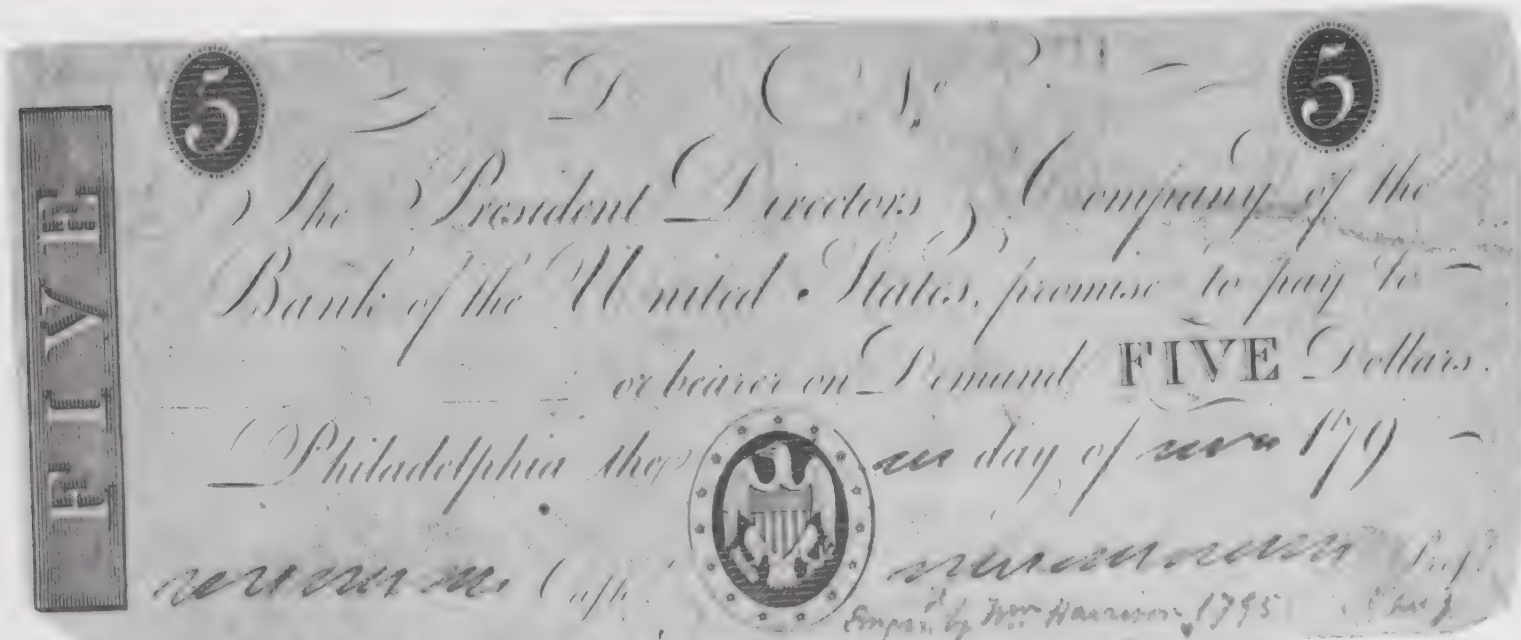 5 D N.o 5
FIVE
The President Directors & Company of the
Bank of the United States, promise to pay to
or bearer on Demand FIVE Dollars.
Philadelphia the day of 179
Cash.r Pres.t
Engrav.d by Wm Harrison 1795